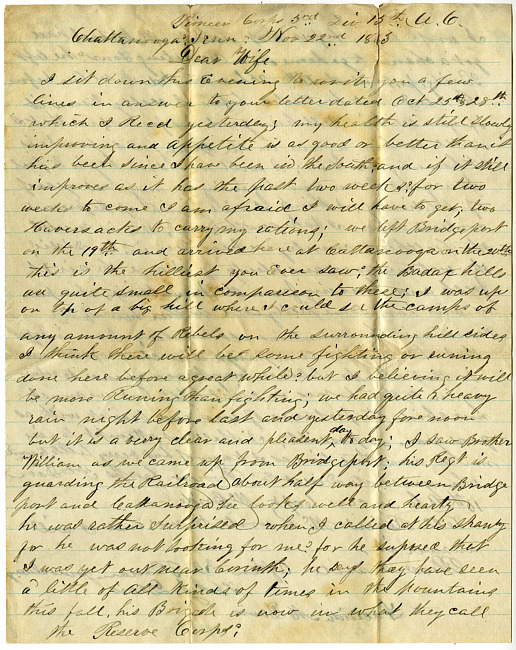 Pioneer Corps 3rd Div 15th A. C.
Chattanooga Tenn: Nov 22nd 1863
Dear Wife
I sit down this Evening to write you a few
lines in answer to your letter dated Oct 25th & 28th
which I Recd yesterday; my health is still slowly
improving and appetite is as good or better than it
has been since I have been in the South, and if it still
improves as it has the past two weeks; for two
weeks to come I am afraid I will have to get, two
Haversacks to carry my rations; we left Bridgeport
on the 19th and arrived here at Cattanooga on the 20th
this is the hilliest you Ever saw; the Badax hills
are quite small in comparison to these; I was up
on top of a big hill where I could see the camps of
any amount of Rebels on the surrounding hill cides
I think there will bee some fighting or runing
done here before a great while? but I believing it will
be more Running than fighting; we had quite a heavy
rain night before last and yesterday fore noon
but it is a very clear and pleasent day to day; I saw Brother
William as we came up from Bridgeport; his Regt is
guarding the Railroad about half way between Bridge
port and Cattanooga he looks well and hearty
he was rather Surprised when I called at his shanty
for he was not looking for me? for he suposed that
I was yet out near Corinth; he says they have seen
a little of all kinds of times in the mountains
this fall, his Brigade is now in what they call
the Reserve Corps;